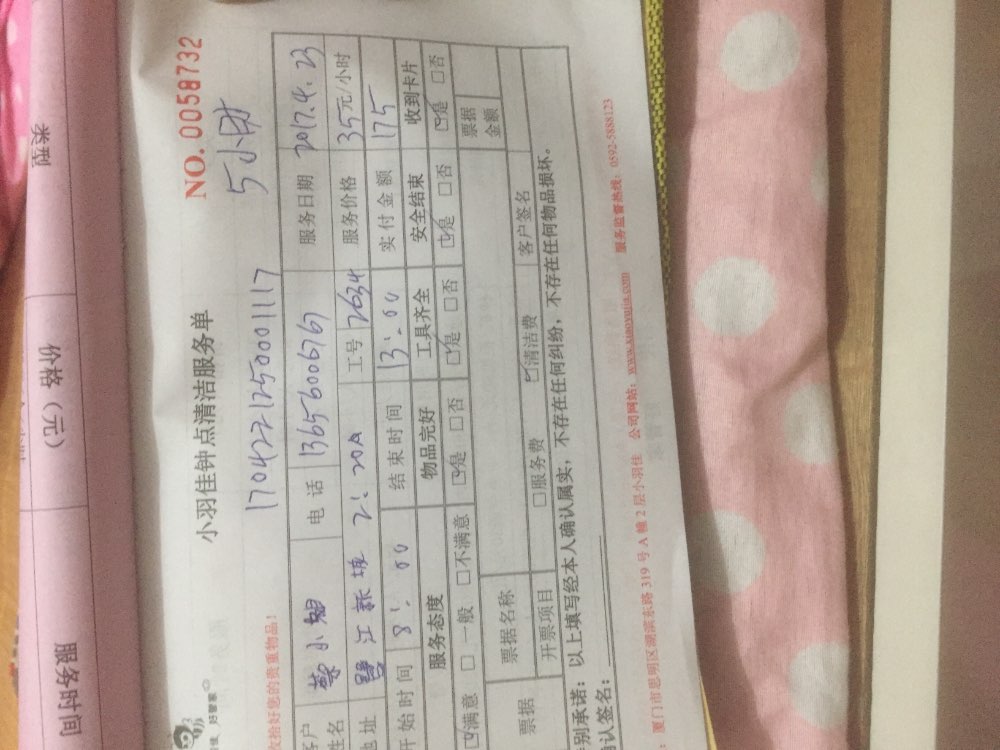 类型
价格（元）
服务时间
NO. 0058732
小羽佳钟点清洁服务单
5小时
1704221250001117
收拾好您的贵重物品！
客户姓名 小姐 电话 13656006767 服务日期 2017.4.23
地址 鹭江新城 2: 20A 工号 2634 服务价格 35元/小时
开始时间 8:00 结束时间 13:00 实付金额 175
服务态度 物品完好 工具齐全 安全结束 收到卡片
☑满意 □一般 □不满意 ☑是 □否 ☑是 □否 ☑是 □否 ☑是 □否
票据 票据名称 票据金额
开票项目 □服务费 ☑清洁费 客户签名
别承诺：以上填写经本人确认属实，不存在任何纠纷，不存在任何物品损坏。
认签名：
：厦门市思明区湖滨东路 319 号 A 幢 2 层小羽佳 公司网站：www.xiaoyujia.com 服务监督热线：0592-5888123